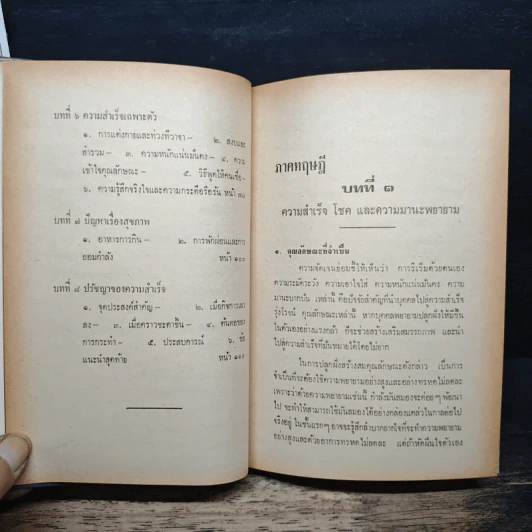 บทที่ ๖ ความสำเร็จเฉพาะตัว
๑. การแต่งกายและท่วงทีวาจา — ๒. สงบและ
สำรวม — ๓. ความหนักแน่นมั่นคง — ๔. ความ
เข้าใจคุณลักษณะ — ๕. วิธีพูดให้คนเชื่อ —
๖. ความรู้สึกจริงใจและความกระตือรือร้น หน้า
บทที่ ๗ ปัญหาเรื่องสุขภาพ
๑. อาหารการกิน — ๒. การพักผ่อนและการ
ออมกำลัง หน้า ๑๐๐
บทที่ ๘ ปรัชญาของความสำเร็จ
๑. จุดประสงค์สำคัญ — ๒. เมื่อกิจการเลว
ลง — ๓. เมื่อคราวชะตาขึ้น — ๔. ต้น
การกระทำ — ๕. ประสบการณ์ ๖. ข้อ
แนะนำสุดท้าย หน้า ๑๑๑
ภาคทฤษฎี
บทที่ ๑
ความสำเร็จ โชค และความมานะพยายาม
๑. คุณลักษณะที่จำเป็น
ความจัดเจนย่อมชี้ให้เห็นว่า การริเริ่มด้วยตนเอง
ความระมัดระวัง ความเอาใจใส่ ความหนักแน่นมั่นคง ความ
มานะบากบั่น เหล่านี้ คือปัจจัยสำคัญที่นำบุคคลไปสู่ความสำเร็จ
รุ่งโรจน์ คุณลักษณะเหล่านี้ หากบุคคลพยายามปลูกฝังให้มีขึ้น
ในตัวเองอย่างแรงกล้า ก็จะช่วยสร้างเสริมสมรรถภาพ และนำ
ไปสู่ความสำเร็จที่มั่นหมายได้โดยไม่ยาก
ในการปลูกฝังสร้างสมคุณลักษณะดังกล่าว เป็นการ
จำเป็นที่จะต้องใช้ความพยายามอย่างสูงและอย่างทรหดไม่ลดละ
เพราะว่าด้วยความพยายามเช่นนั้น กำลังมันสมองจะค่อยๆ พัฒนา
ไป จะทำให้สามารถใช้มันสมองได้อย่างคล่องแคล่วในกาลต่อไป
จริงอยู่ ในขั้นแรกๆ อาจจะรู้สึกลำบากยากใจที่จะทำความพยายาม
อย่างสูงและด้วยอาการทรหดไม่ลดละ แต่ถ้าหัดฝืนใจตัวเอง